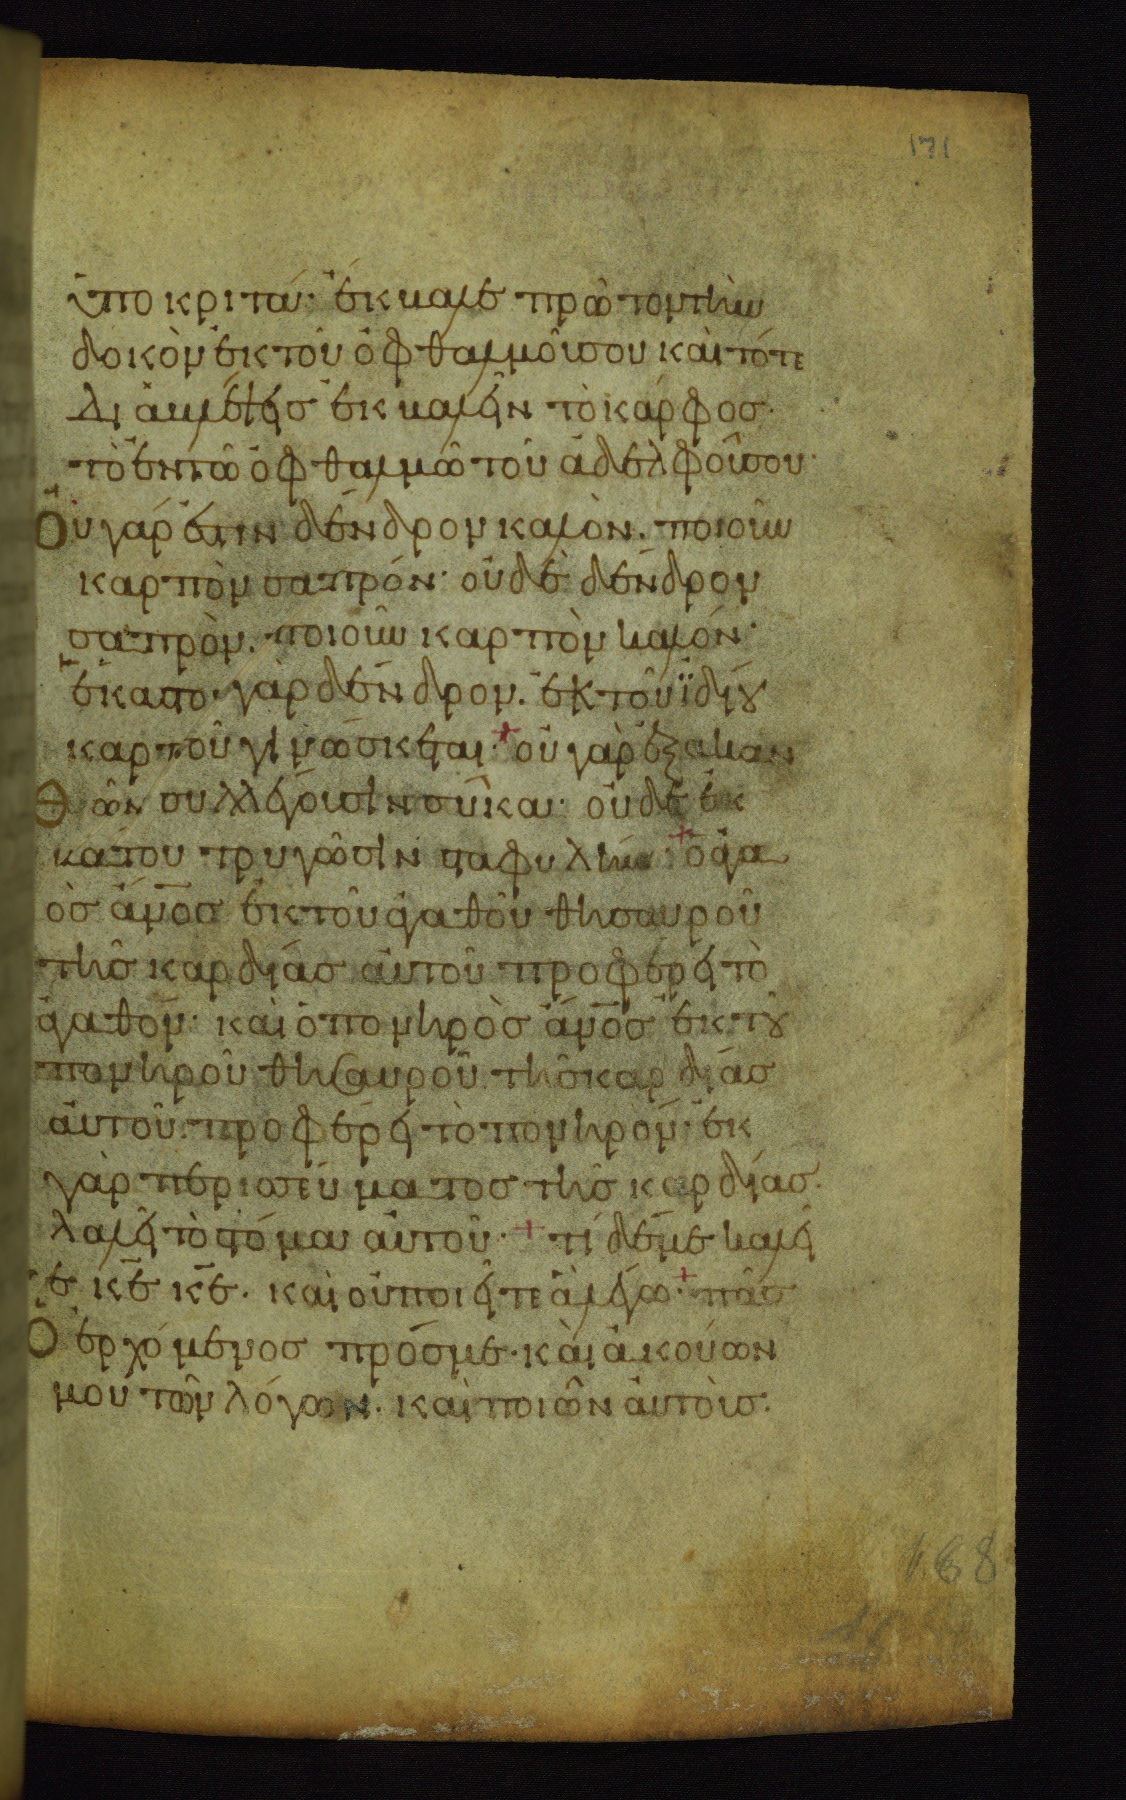 171
ὑποκριτά· ἔκβαλε πρῶτον τὴν
δοκὸν ἐκ τοῦ ὀφθαλμοῦ σου καὶ τότε
διαβλέψεις ἐκβαλεῖν τὸ κάρφος
τὸ ἐν τῶ ὀφθαλμῶ τοῦ ἀδελφοῦ σου·
Οὐ γάρ ἐστιν δένδρον καλὸν. ποιοῦν
καρπὸν σαπρόν· οὐδὲ δένδρον
σαπρὸν. ποιοῦν καρπὸν καλόν·
ἕκαστο· γὰρ δένδρον. ἐκ τοῦ ϊδίου
καρποῦ γινώσκεται· + οὐ γὰρ ἐξ ακαν
θῶν συλλέγουσιν σῦκα· οὐδὲ ἐκ
βάτου τρυγῶσιν σταφυλὴν· + ὁ ἀγα
θὸς ἄνος ἐκ τοῦ ἀγαθοῦ θησαυροῦ
τῆς καρδίας αὐτοῦ προφέρει τὸ
ἀγαθόν· καὶ ὁ πονηρὸς ἄνος ἐκ τοῦ
πονηροῦ θησαυροῦ τῆς καρδίας
αὐτοῦ. προφέρει τὸ πονηρόν· ἐκ
γὰρ περισσεύματος τῆς καρδίας.
λαλεῖ τὸ στόμα αὐτοῦ· + τί δέ με καλεῖ
τε κε κε. καὶ οὐ ποιεῖτε ἃ λέγω· + πᾶς
Ὁ ἐρχόμενος πρός με· καὶ ἀκούων
μου τῶν λόγων. καὶ ποιῶν αὐτοὺς.
168